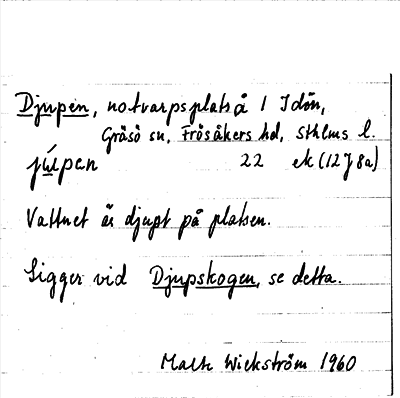 Djupen, notvarpsplats å I Idön,
Gräsö sn, Frösåkers hd, Sthlms l.
júpen 22 ek (12 J 8a)
Vattnet är djupt på platsen.
Ligger vid Djupskogen, se detta.
Wickström 1960